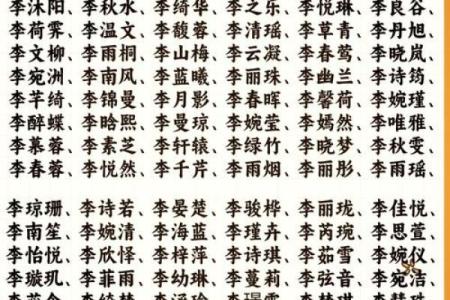 李沐阳、李秋水、李绮华、李之乐、李悦琳、李良谷、
李荷霁、李温文、李馥蓉、李清瑶、李草青、李丹旭、
李文柳、李雨桐、李山梅、李云凝、李春莺、李晓岚、
李宛洲、李南风、李蓝曦、李丽珠、李幽兰、李诗筠、
李芊绮、李锦曼、李月影、李春晖、李馨荷、李婉瑾、
李醉蝶、李晗熙、李曼琼、李婉莹、李嫣然、李唯雅、
李慕蓉、李素芝、李轩辕、李绿竹、李晓梦、李秋雯、
李春蓉、李悦然、李千芹、李雨烟、李丽彤、李雨瑶、
李琼珊、李诗若、李晏楚、李骏桦、李丽珑、李佳悦、
李南笙、李婉清、李海蓝、李瑾卉、李芮琬、李思萱、
李怡悦、李欣怿、李梓萍、李诗琪、李茹雪、李婉仪、
李璇玑、李菲雨、李幼琳、李蔓莉、李弦音、李宛洁、